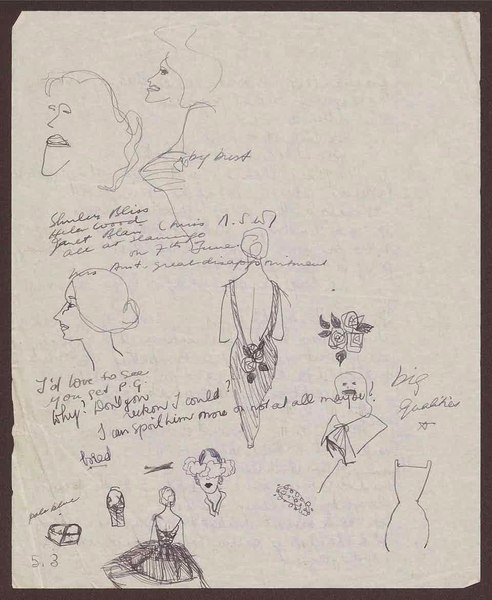 by bust
Shirley Bliss
Hila Wood
Janet Blair (Miss N.S.W)
all at Flamingo
on 7th June
Ant. great disappointment
I'd love to see
you get P.G.
Why? Don't you
reckon I could?
I can spoil him more or not at all maybe!
big
qualities
bored
pale blue
5.3